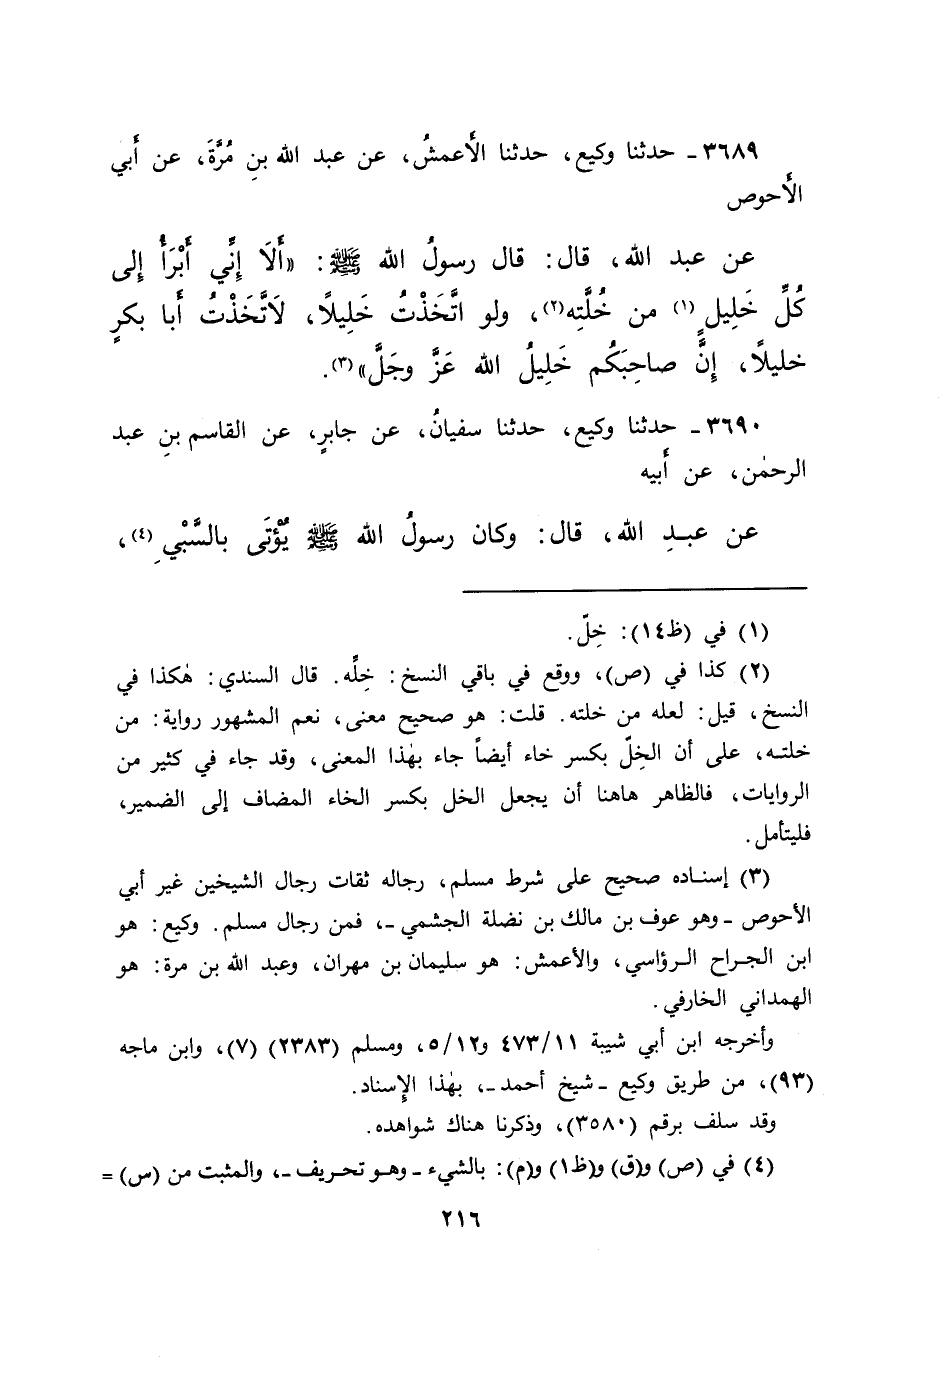 ٣٦٨٩ ـ حدثنا وكيع، حدثنا الأَعمشُ، عن عبد الله بنِ مُرَّةَ، عن أَبي
الأَحوص
عن عبد الله، قال: قال رسولُ الله ﷺ: «أَلَا إِنِّي أَبْرَأُ إِلى
كُلِّ خَلِيلٍ(١) من خُلَّتِه(٢)، ولو اتَّخَذْتُ خَلِيلًا، لَاتَّخَذْتُ أَبا بكرٍ
خليلًا، إِنَّ صاحِبَكُم خَلِيلُ الله عَزَّ وجَلَّ»(٣).
٣٦٩٠ ـ حدثنا وكيع، حدثنا سفيانُ، عن جابرٍ، عن القاسم بنِ عبد
الرحمٰن، عن أَبيه
عن عبـدِ الله، قال: وكان رسولُ الله ﷺ يُؤْتَى بالسَّبْيِ(٤)،
(١) في (ظ١٤): خِلّ.
(٢) كذا في (ص)، ووقع في باقي النسخ: خِلِّه. قال السندي: هٰكذا في
النسخ، قيل: لعله من خلته. قلت: هو صحيح معنى، نعم المشهور رواية: من
خلتـه، على أن الخِلّ بكسر خاء أيضاً جاء بهٰذا المعنى، وقد جاء في كثير من
الروايات، فالظاهر هاهنا أن يجعل الخل بكسر الخاء المضاف إلى الضمير،
فليتأمل.
(٣) إسنـاده صحيح على شرط مسلم، رجاله ثقات رجال الشيخين غير أبي
الأحوص ـ وهو عوف بن مالك بن نضلة الجشمي ـ، فمن رجال مسلم. وكيع: هو
ابن الجـراح الـرؤاسي، والأعمش: هو سليمان بن مهران، وعبد الله بن مرة: هو
الهمداني الخارفي.
وأخرجه ابن أبي شيبة ٤٧٣/١١ و٥/١٢، ومسلم (٢٣٨٣) (٧)، وابن ماجه
(٩٣)، من طريق وكيع ـ شيخ أحمد ـ، بهٰذا الإِسناد.
وقد سلف برقم (٣٥٨٠)، وذكرنا هناك شواهده.
(٤) في (ص) و(ق) و(ظ١) و(م): بالشيء ـ وهـو تحـريف ـ، والمثبت من (س) =
٢١٦